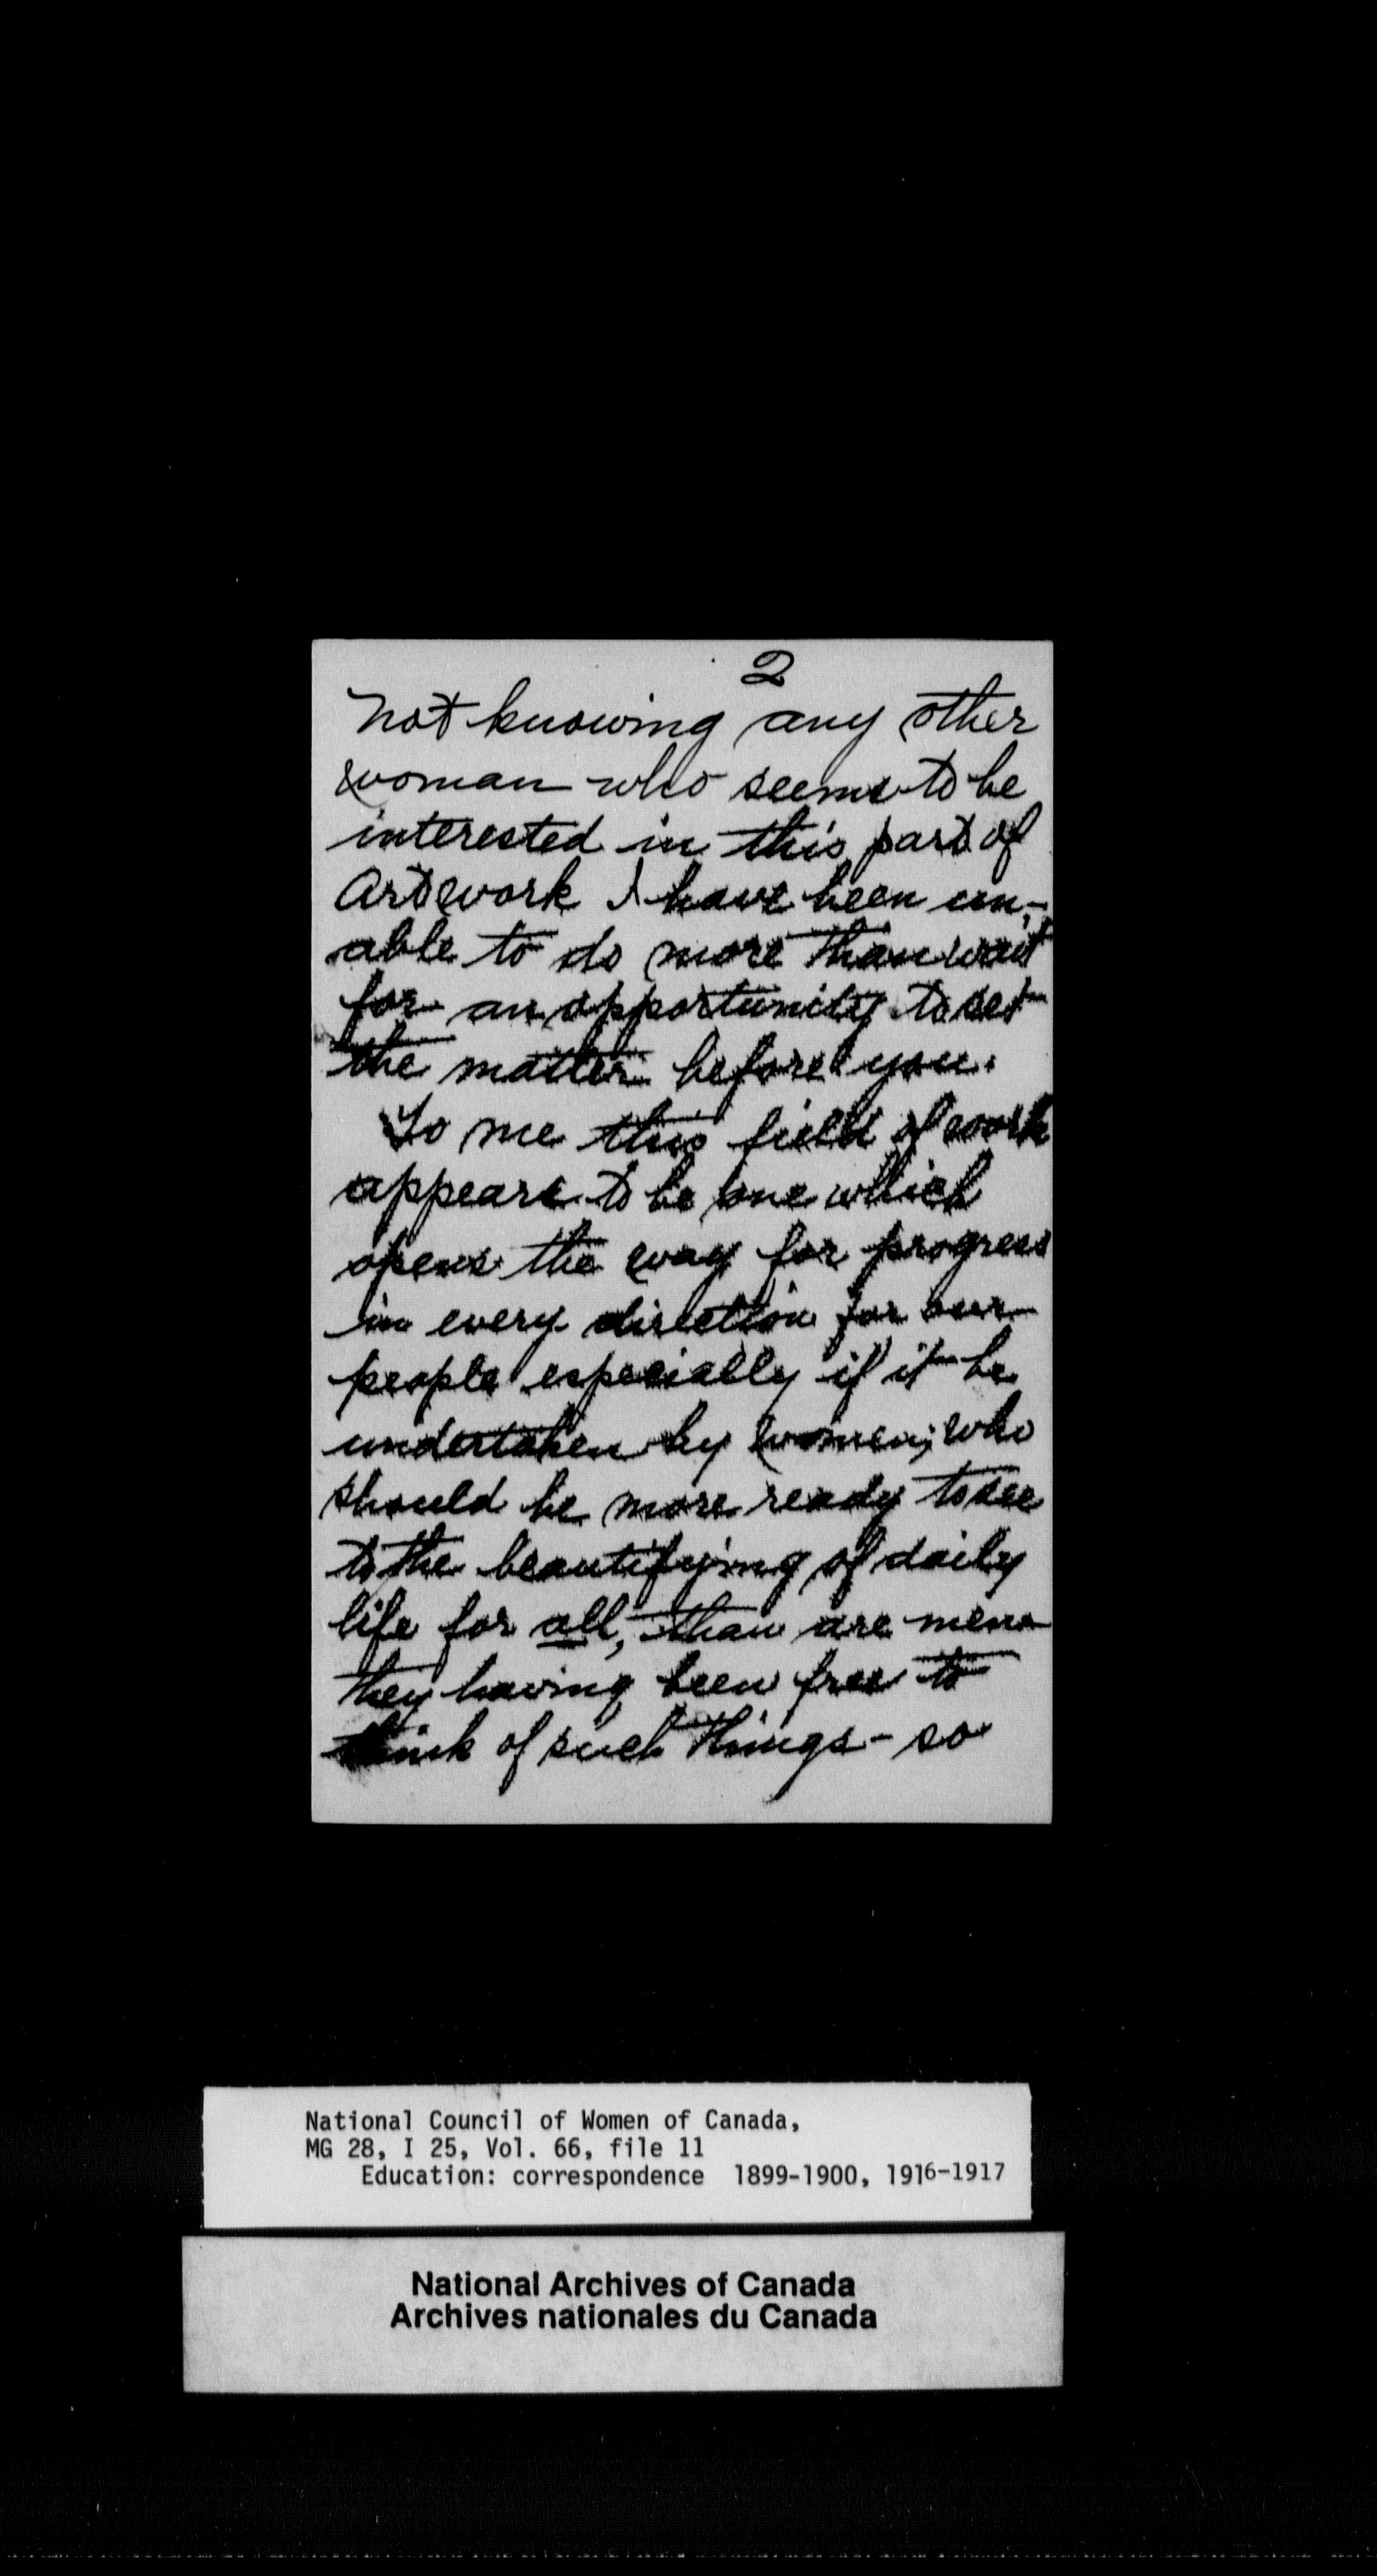 2
Not knowing any other
woman who seems to be
interested in this part of
Art work I have been un-
able to do more than wait
for an opportunity to set
the matter before you.
To me this field of work
appears to be one which
opens the way for progress
in every direction for our
people especially if it be
undertaken by women; who
should be more ready to see
to the beautifying of daily
life for all, than are men -
they having been free to
think of such things - so
National Council of Women of Canada,
MG 28, I 25, Vol. 66, file 11
Education: correspondence 1899-1900, 1916-1917
National Archives of Canada
Archives nationales du Canada